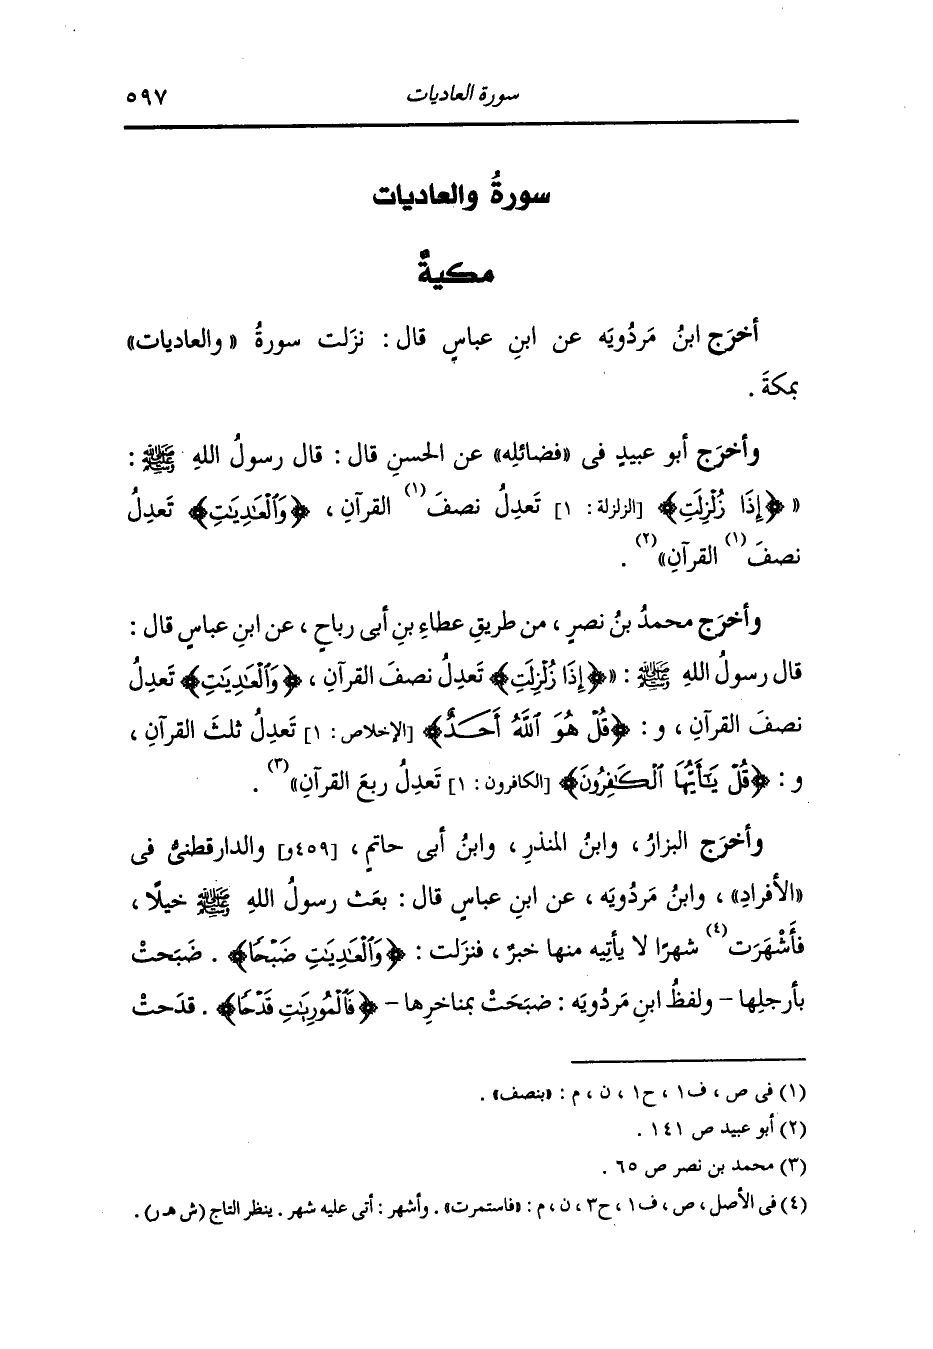 سورة العاديات
٥٩٧
سورةُ والعاديات
مكيةٌ
أخرَج ابنُ مَردُويَه عن ابنِ عباسٍ قال : نزَلت سورةُ « والعاديات»
بمكةَ .
وأخرَج أبو عبيدٍ فى «فضائلِه» عن الحسنِ قال : قال رسولُ اللهِ ﷺ :
« ﴿إِذَا زُلْزِلَتِ﴾ [الزلزلة : ١] تَعدِلُ نصفَ(١) القرآنِ ، ﴿وَٱلْعَٰدِيَٰتِ﴾ تَعدِلُ
نصفَ(١) القرآنِ»(٢) .
وأخرَج محمدُ بنُ نصرٍ ، من طريقِ عطاءِ بنِ أبى رباحٍ ، عن ابنِ عباسٍ قال :
قال رسولُ اللهِ ﷺ : «﴿إِذَا زُلْزِلَتِ﴾ تَعدِلُ نصفَ القرآنِ ، ﴿وَٱلْعَٰدِيَٰتِ﴾ تَعدِلُ
نصفَ القرآنِ ، و : ﴿قُلْ هُوَ ٱللَّهُ أَحَـدٌ﴾ [الإخلاص : ١] تَعدِلُ ثلثَ القرآنِ ،
و : ﴿قُلْ يَـٰٓأَيُّهَا ٱلْكَـٰفِرُونَ﴾ [الكافرون : ١] تَعدِلُ ربعَ القرآنِ»(٣) .
وأخرَج البزارُ ، وابنُ المنذرِ ، وابنُ أبى حاتمٍ ، [٤٥٩و] والدارقطنىُّ فى
«الأفرادِ» ، وابنُ مَردُويَه ، عن ابنِ عباسٍ قال : بعَث رسولُ اللهِ ﷺ خيلًا ،
فأَشْهَرَت(٤) شهرًا لا يأتِيه منها خبرٌ ، فنزَلت : ﴿وَٱلْعَٰدِيَٰتِ ضَبْحًا﴾ . ضَبَحتْ
بأرجلِها – ولفظُ ابنِ مَردُويَه : ضبَحَتْ بمناخرِها – ﴿فَٱلْمُورِيَٰتِ قَدْحًا﴾ . قدَحتْ
(١) فى ص ، ف١ ، ح١ ، ن ، م : «بنصف» .
(٢) أبو عبيد ص ١٤١ .
(٣) محمد بن نصر ص ٦٥ .
(٤) فى الأصل ، ص ، ف١ ، ح٣ ، ن ، م : «فاستمرت» . وأشهر : أتى عليه شهر . ينظر التاج (ش هـ ر) .